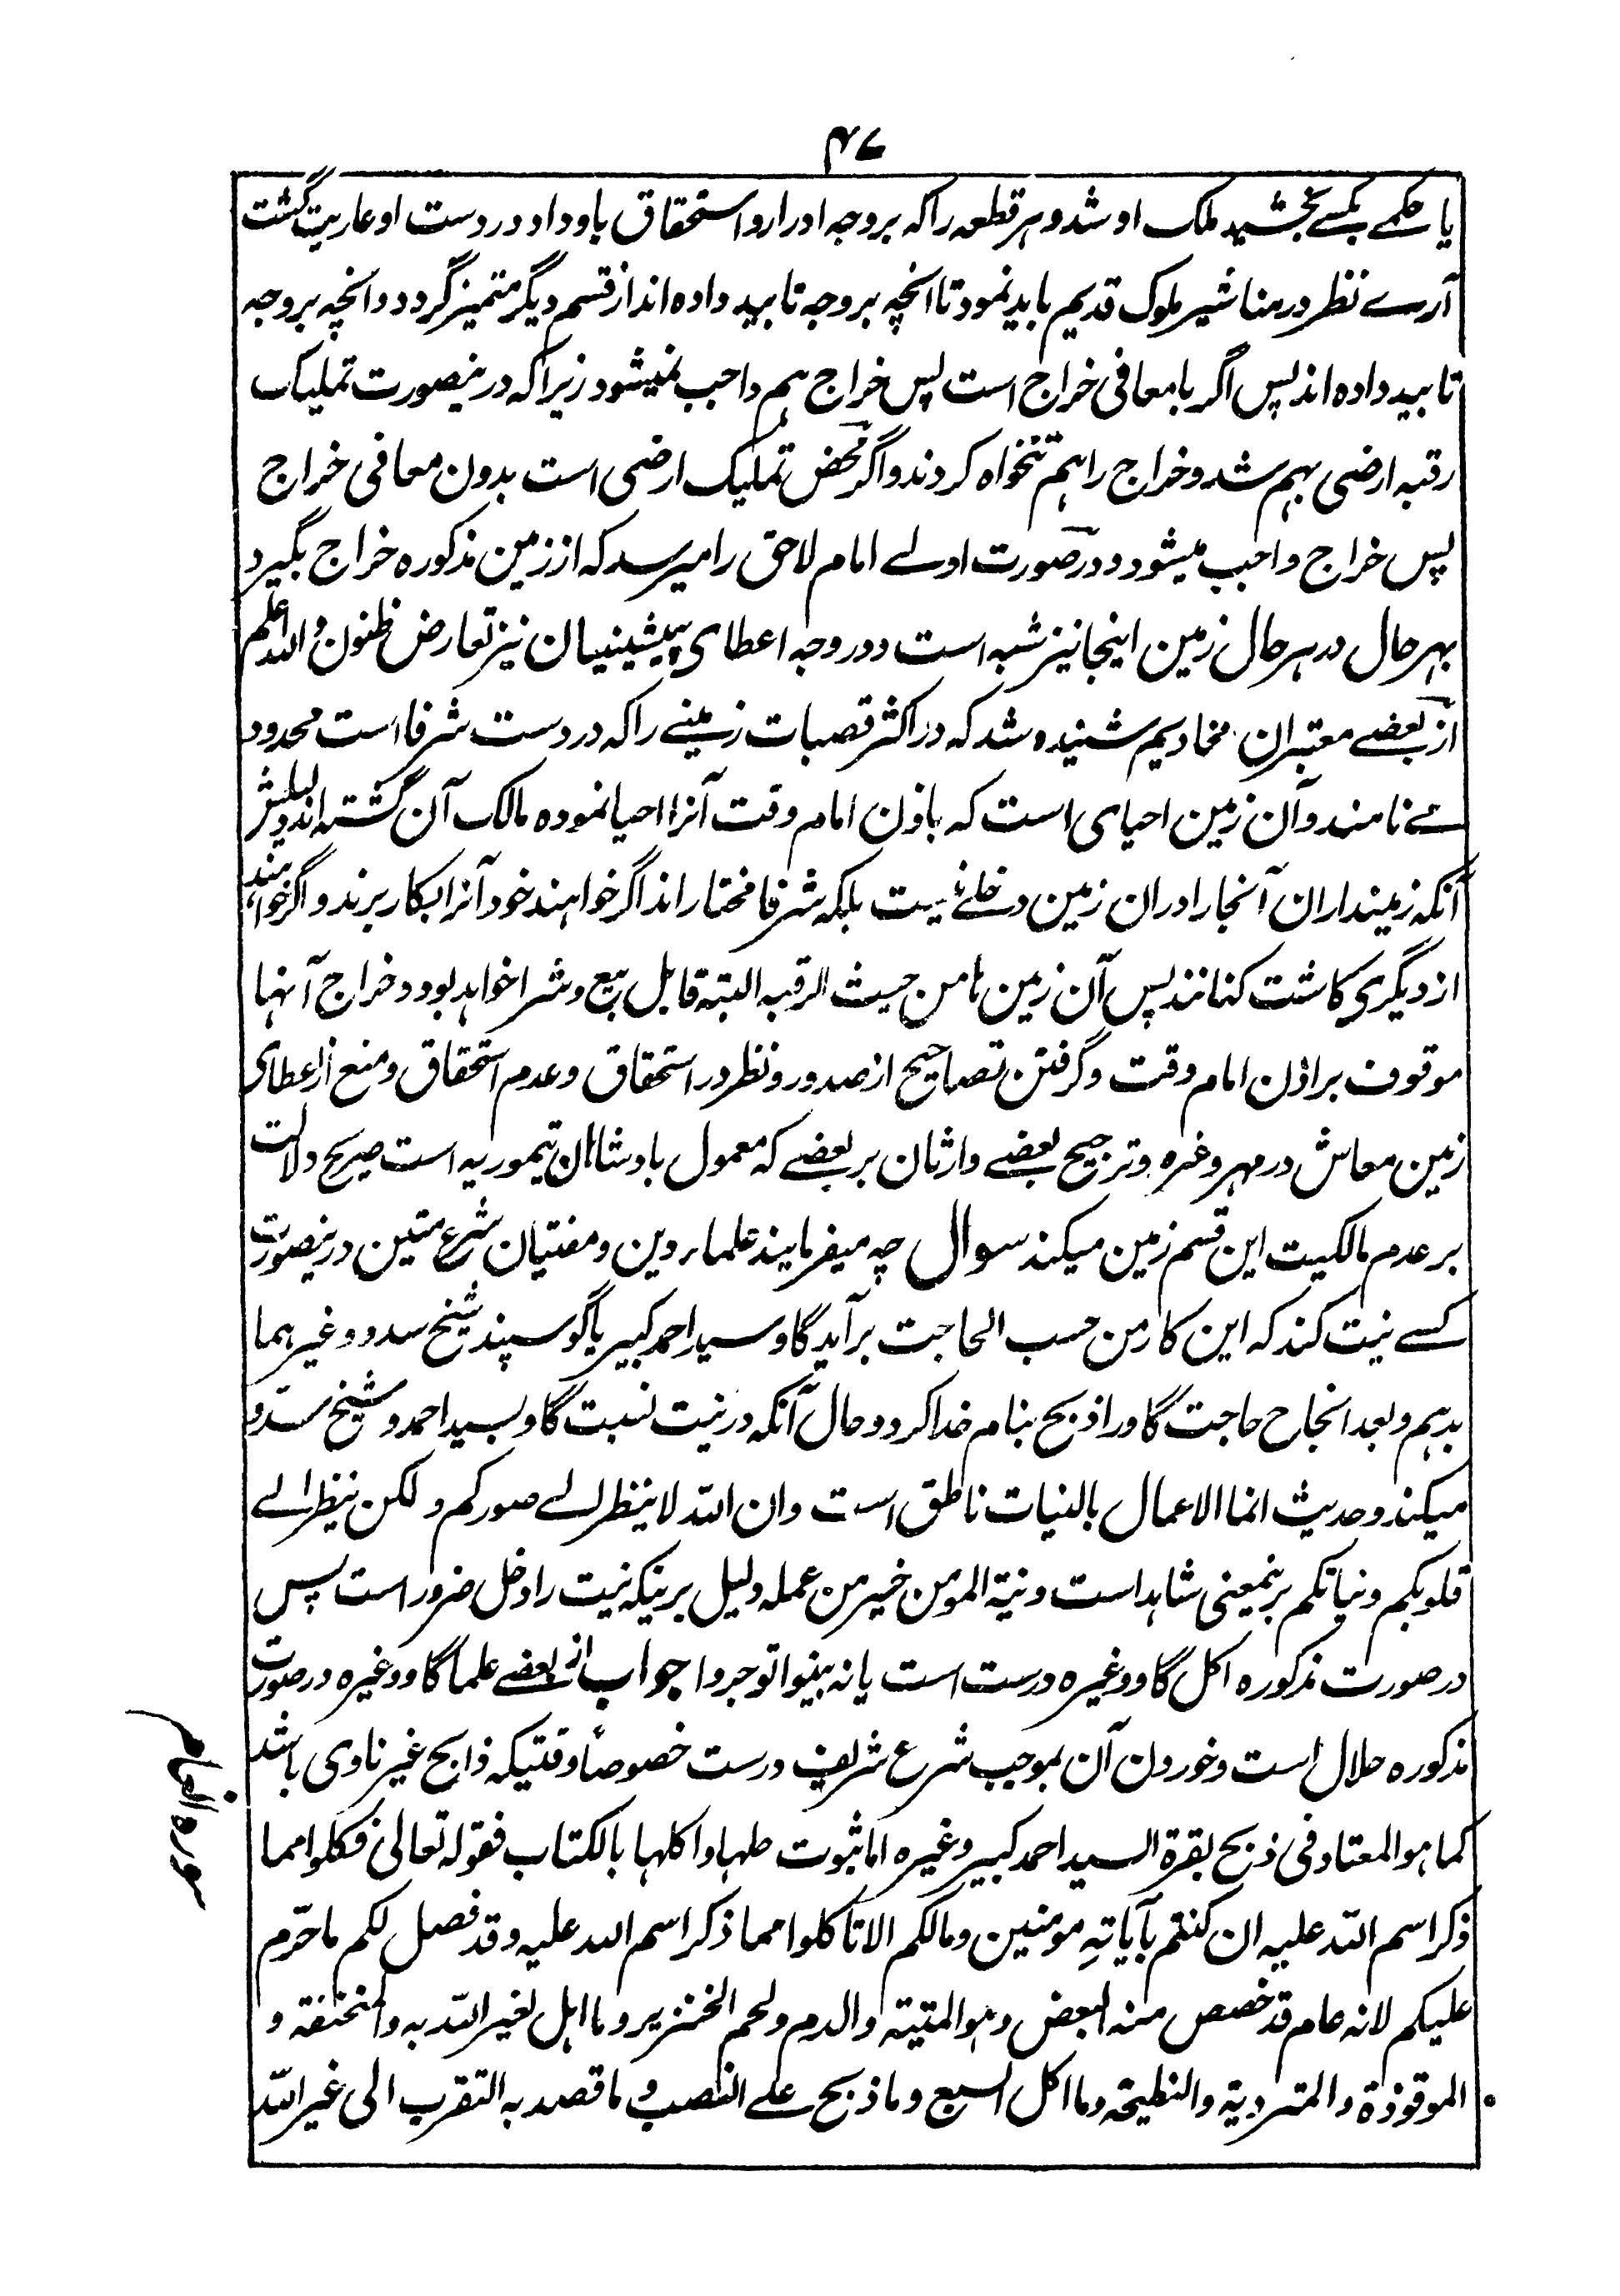 ۴۷
یا حکمے بکسے بخشید ملک او شد و ہر قطعہ را کہ بر وجہ ادرار و استحقاق باو داد در دست او عاریت گشت
آرے نظر در مناشیر ملوک قدیم باید نمود تا انچہ بر وجہ تابید دادہ اند از قسم دیگر متمیز گردد و انچہ بر وجہ
تابید دادہ اند پس اگر با معافی خراج است پس خراج ہم واجب نمیشود زیرا کہ درینصورت تملیک
رقبہ ارضی بہم شد و خراج را ہم تنخواہ کردند و اگر محض تملیک ارضی است بدون معافی خراج
پس خراج واجب میشود و در صورت اولے امام لاحق را میرسد کہ از زمین مذکورہ خراج بگیرد
بہر حال در ہر حال زمین اینجا نیز شبہ است و در وجہ اعطای پیشینیان نیز تعارض ظنون واللہ اعلم
از بعضے معتبران مخادیم شنیدہ شد کہ در اکثر قصبات زمینے را کہ در دست شرفا است محدود
مے نامند و آن زمین احیای است کہ باذن امام وقت آنرا احیا نمودہ مالک آن گشتہ اند و دلیلش
آنکہ زمینداران آنجا را دران زمین دخلے نیست بلکہ شرفا مختار اند اگر خواہند خود آنرا بکار برند و اگر خواہند
از دیگری کاشت کنانند پس آن زمین با من حیث الرقبہ البتہ قابل بیع و شرا خواہد بود و خراج آنہا
موقوف بر اذن امام وقت و گرفتن تصاحیح از صدور و نظر در استحقاق و عدم استحقاق و منع از اعطای
زمین معاش در مہر و غیرہ و ترجیح بعضے وارثان بر بعضے کہ معمول بادشاہان تیموریہ است صریح دلالت
بر عدم مالکیت این قسم زمین میکند سوال چہ میفرمایند علماء دین و مفتیان شرع متین درینصورت
کسے نیت کند کہ این کار من حسب الحاجت برآید گاو سید احمد کبیر یا گوسپند شیخ سدو و غیرہما
بدہم و بعد انجاح حاجت گاو را ذبح بنام خدا کرد و حال آنکہ در نیت نسبت گاو بسید احمد و شیخ سدّو
میکند و حدیث انما الاعمال بالنیات ناطق است و ان اللہ لا ینظر الے صورکم و لکن ینظر الے
قلوبکم و نیاتکم برینمعنی شاہد است و نیة المومن خیر من عملہ دلیل برینکہ نیت را دخل ضرور است پس
در صورت مذکورہ اکل گاو و غیرہ درست است یا نہ بینوا توجروا جواب از بعضے علما گاو و غیرہ در صورت
مذکورہ حلال است و خوردن آن بموجب شرع شریف درست خصوصاً وقتیکہ ذابح غیر ناوی باشد
کما ہو المعتاد فی ذبح بقرة السید احمد کبیر و غیرہ اما ثبوت حلہا و اکلہا بالکتاب فقولہ تعالیٰ فکلوا مما
ذکر اسم اللہ علیہ ان کنتم بآیاتہِ مومنین و مالکم الا تاکلوا مما ذکر اسم اللہ علیہ و قد فصل لکم ما حرّم
علیکم لانہ عام قد خصص منہ البعض و ہو المیتة و الدم و لحم الخنزیر و ما اہل لغیر اللہ بہ والمنخنقة و
الموقوذة و المتردیة والنطیحة وما اکل السبع و ما ذبح علے النصب و ما قصد بہ التقرب الی غیر اللہ
سورہ انعام